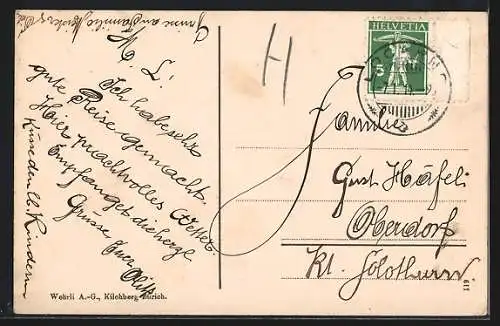 Grüsse an Familie
M. L!
Ich habe sehr
gute Reise gemacht.
Hier prachtvolles Wetter.
Empfanget die herzl
Grüsse Euer
Küsse den lb. Kindern
H
HELVETIA
5
LOCARNO
Familie
Gust Häfeli
Oberdorf
Kt. Solothurn
Wehrli A.-G., Kilchberg Zürich.
617